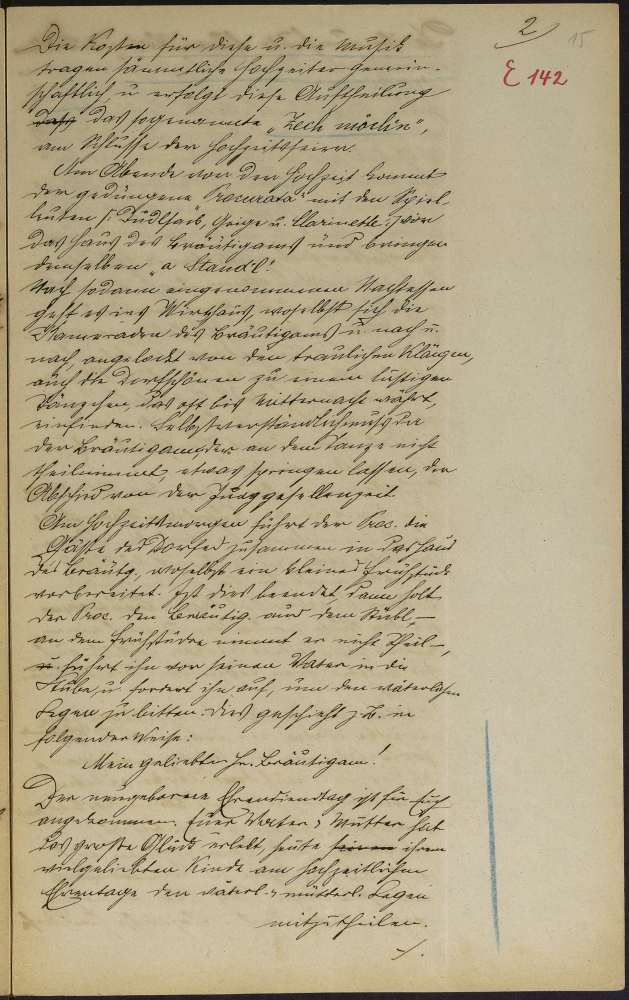 2
15
E 142
Die Kosten für diese u. die Musik
tragen sämmtliche Hochzeiter gemein-
schaftlich u. erfolgt diese Auftheilung
dass das sogenannte „Zech möchn",
am Schlusse der Hochzeitsfeier.
Am Abende vor der Hochzeit kommt
der gedungene „Procurata" mit den Spiel-
leuten (: Dudlsack, Geige u. Clarinette :) vor
das Haus des Bräutigams und bringen
demselben „a Standl".
Nach sodann eingenommenem Nachtessen
geht es ins Wirthaus, woselbst sich die
Kameraden des Bräutigams u. nach u.
nach, angelockt von den traulichen Klängen,
auch die Dorfschönen zu einem lustigen
Tänzchen, das oft bis Mitternacht währt,
einfinden. Selbstverständlich muss da
der Bräutigam, der an dem Tanze nicht
theilnimmt, etwas springen lassen, den
Abschied von der Junggesellenzeit.
Am Hochzeitsmorgen führt der Proc. die
Gäste des Dorfes zusammen in das Haus
des Bräutg., woselbst ein kleines Frühstück
vorbereitet. Ist dies beendet dann holt
der Proc. den Bräutig. aus dem Stübl, –
an dem Frühstücke nimmt er nicht Theil –,
u. führt ihn vor seinen Vater in die
Stube, u. fordert ihn auf, um den väterlichen
Segen zu bitten. Dies geschieht z. B. in
folgender Weise:
Mein geliebter Hr. Bräutigam!
Der neugeborene Ehrendienstag ist für Euch
angekommen. Euer Vater u. Mutter hat
das große Glück erlebt, heute seinen ihrem
vielgeliebten Kinde am hochzeitlichen
Ehrentage den väterl. u. mütterl. Segen
mitzutheilen.
./.